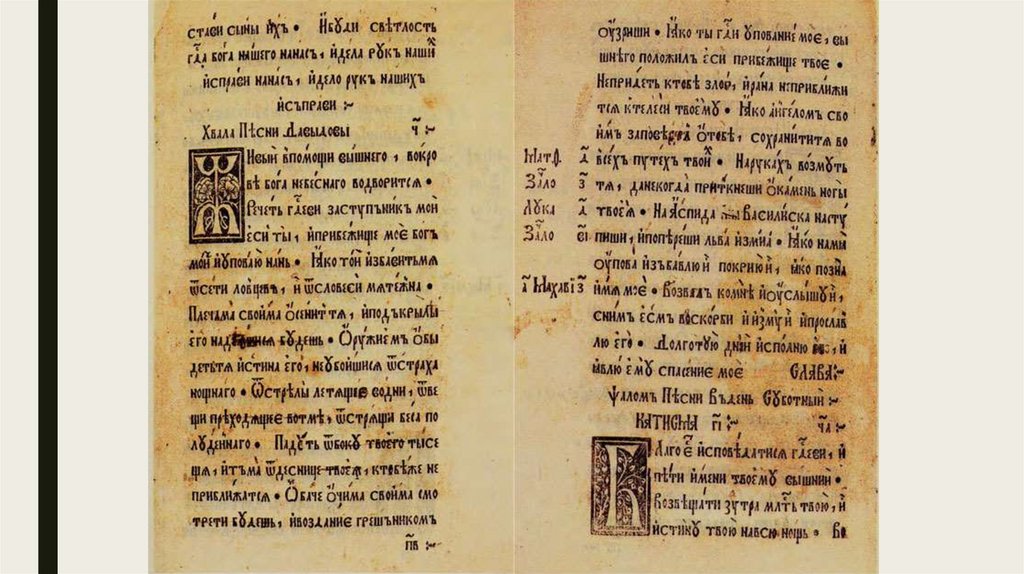 стави сыны ихъ • И҆буди свѣтлость
гд҇а бога нашего нанасъ, и҆дела рукъ наши
и҆справи нанасъ, и҆дело рукъ нашихъ
и҆съправи :~
Хвала Пѣсни Давыдовы ч҃ :~
Живыи впомощи вышнего, вокро
вѣ бога небеснаго водворится •
Речеть гл҃еви заступъникъ мои
еси ты, и҆прибежище мое богъ
мои и҆уповаю нань • Ꙗко тои избавитьмя
ѿсети ловцевъ, и ѿсловеси мятежна •
Плещама своима ѻсенитъ тя, и҆подъкрылѣ
его надѣешися будешь • Ѻружиемъ ѻбы
детьтя истина его, неубоишися ѿстраха
нощнаго • Ѿстрелы летящие водни, ѿве
щи преходящее вотмѣ, ѿстрящи беса по
луденнаго • Падуть ѿбоку твоего тысе
щя, и҆тьма ѡдеснице твоея, ктобѣже не
приближатся • Ѻбаче ѻчима своима смо
трети будешь, и҆воздание грешъникомъ
п҃в :~
ѹзриши • Ꙗко ты гд҇и упование мое, вы
шнѣго положилъ еси прибежище твое •
Непридеть ктобѣ злои, и҆рана неприближи
тся ктелеси твоему • Ꙗко анъгеломъ сво
имъ заповесть ѻтобѣ, сохранититя во
Мат҇ф. д҃ всехъ путехъ твои • Нарукахъ возмуть
За҇ло з҃ тя, данекогда приткнеши ѻкамень ногы
Лука д҃ твоея • Наꙗспида и Василиска насту
За҇ло в҃і пиши, и҆попереши льва и҆змиа • Ꙗко намы
ѹпова изъбавлю и покрию и, ꙗко позна
г҃ Махаві з҃ имя мое • Возвалъ комнѣ и҆ѹслышу и,
снимъ есмъ воскорби и изму и и҆прослав
лю его • Долготую дни исполню его, и
ꙗвлю ему спасение мое СЛАВА :~
Ѱаломъ Пѣсни Въдень Суботныи :~
КАТИСМА г҃і :~ ч҃а :~
Благо е исповѣдатися гл҃еви, и
пѣти имени твоему вышнии •
Возвѣщати зутра мл҇ть твою, и
истину твою навсю нощь • Во